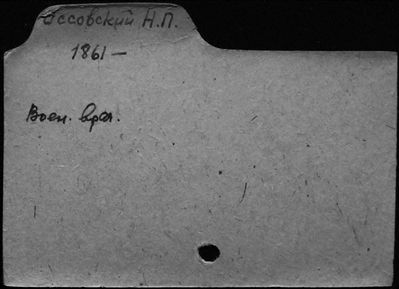 Рассовский Н.П.
1861 —
Воен. врач.